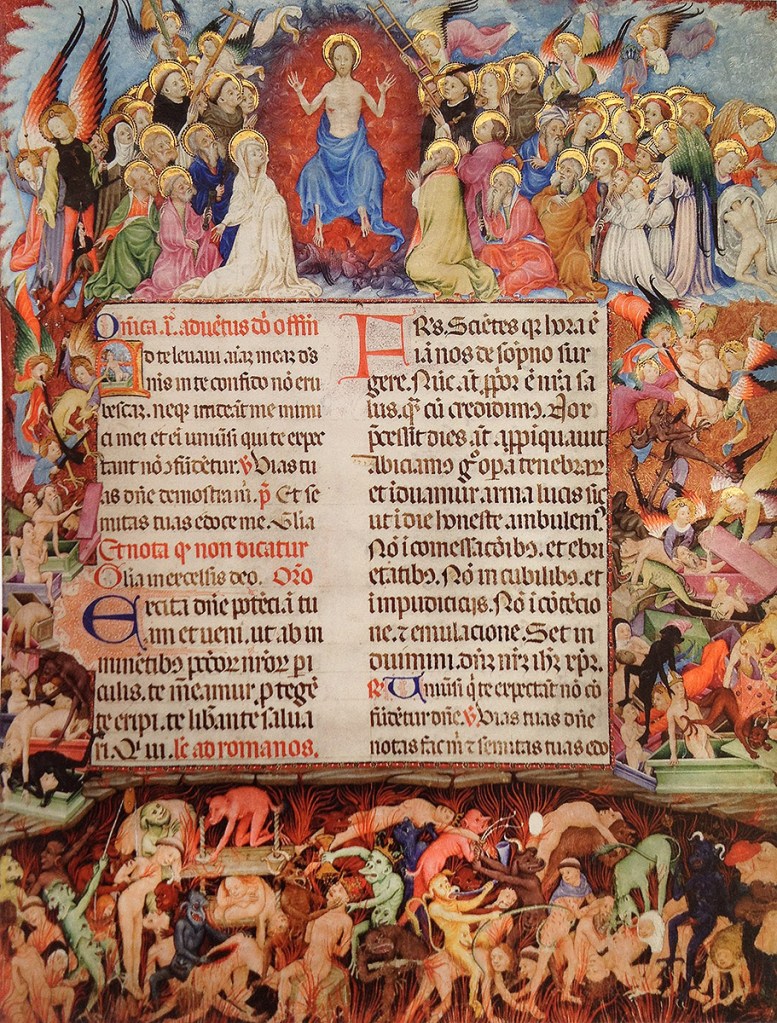 Dn̄ica .ī. aduētus dn̄i offm̄
Ad te leuaui aīaz meaz ds
meus in te confido nō eru
bescaz. neqz irrideāt me inimi
ci mei et eī uniūsi qui te expe
tant nō ꝯfūdētur. ꝟ Vias tu
as dn̄e demostra m̄. p̄. Et se
mitas tuas edoce me. Glīa
Et nota qꝫ non dicatur
Glīa in excelsis deo. Orō
Excita dn̄e potēciā tu
am et ueni. ut ab im
minētibꝰ pctōꝝ nr̄oꝝ pi
culis. te mēamur. ptegē
te eripi. te libāte salua
ri. Qui ui. lc̄ ad romanos.
FRs. Sciētes qꝫ hora ē
iā nos de sōpno sur
gere. Nūc. at̄. p̄p̄oꝛ ē nr̄a sa
lus. qꝫ cū credidimꝰ. Nox
p̄cessit dies. at̄. app̄īquauit
abiciamꝰ gͦ opa tenebraꝝ
et īduamur. arma lucis sic
ut ī die honeste ambulemꝰ.
Nō ī comessaciōibꝰ. et ebri
etatibꝰ. Nō in cubilibꝰ. et
impudiciciis. Nō ī cōtēcio
ne. ⁊ emulacione. Set in
duimini. dn̄z nr̄z ihz xp̄z.
R̄ Uniūsi qi te expectāt nō cō
fūdētur dn̄e. ꝟ Vias tuas dn̄e
notas fac m̄ ⁊ semitas tuas edo